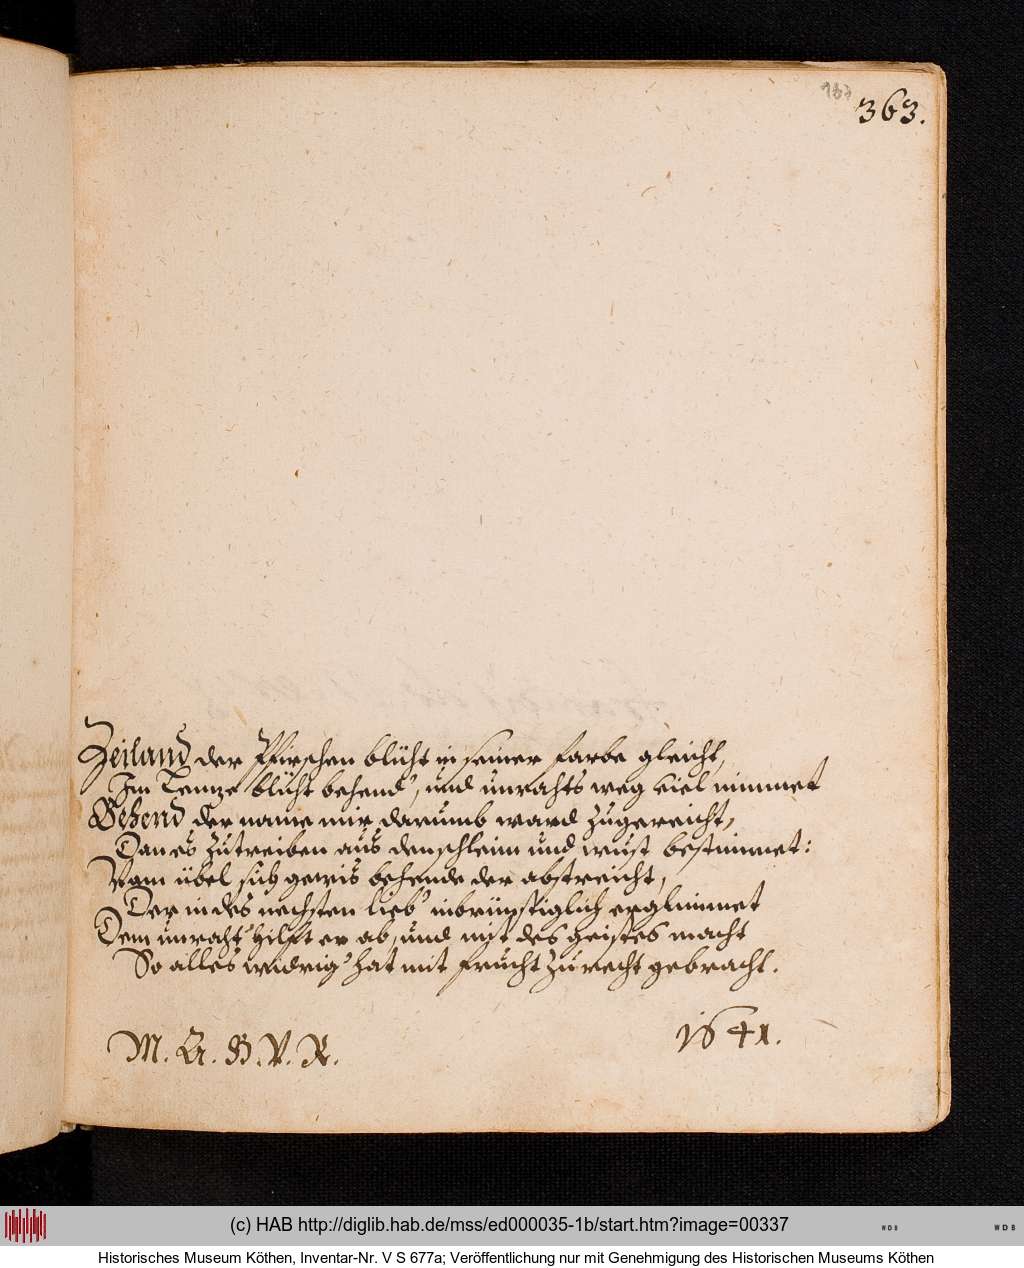 363.
Zeiland der Pfirschen blüht in seiner farbe gleicht,
Im Lentze blüht behend', und unrahts weg viel nimmet
Behend der name mir darumb ward zugereicht,
Dan es zutreiben aus den schleim und wust bestimmet:
Vom übel sich gewis behende der abstreicht,
Der in des nechsten lieb' inbrünstiglich erglimmet
Dem unraht' hilft er ab, und mit des geistes macht
So alles widrig' hat mit frucht zurecht gebracht.
1641.
M. G. B. V. R.
(c) HAB http://diglib.hab.de/mss/ed000035-1b/start.htm?image=00337
WDB
WDB
Historisches Museum Köthen, Inventar-Nr. V S 677a; Veröffentlichung nur mit Genehmigung des Historischen Museums Köthen